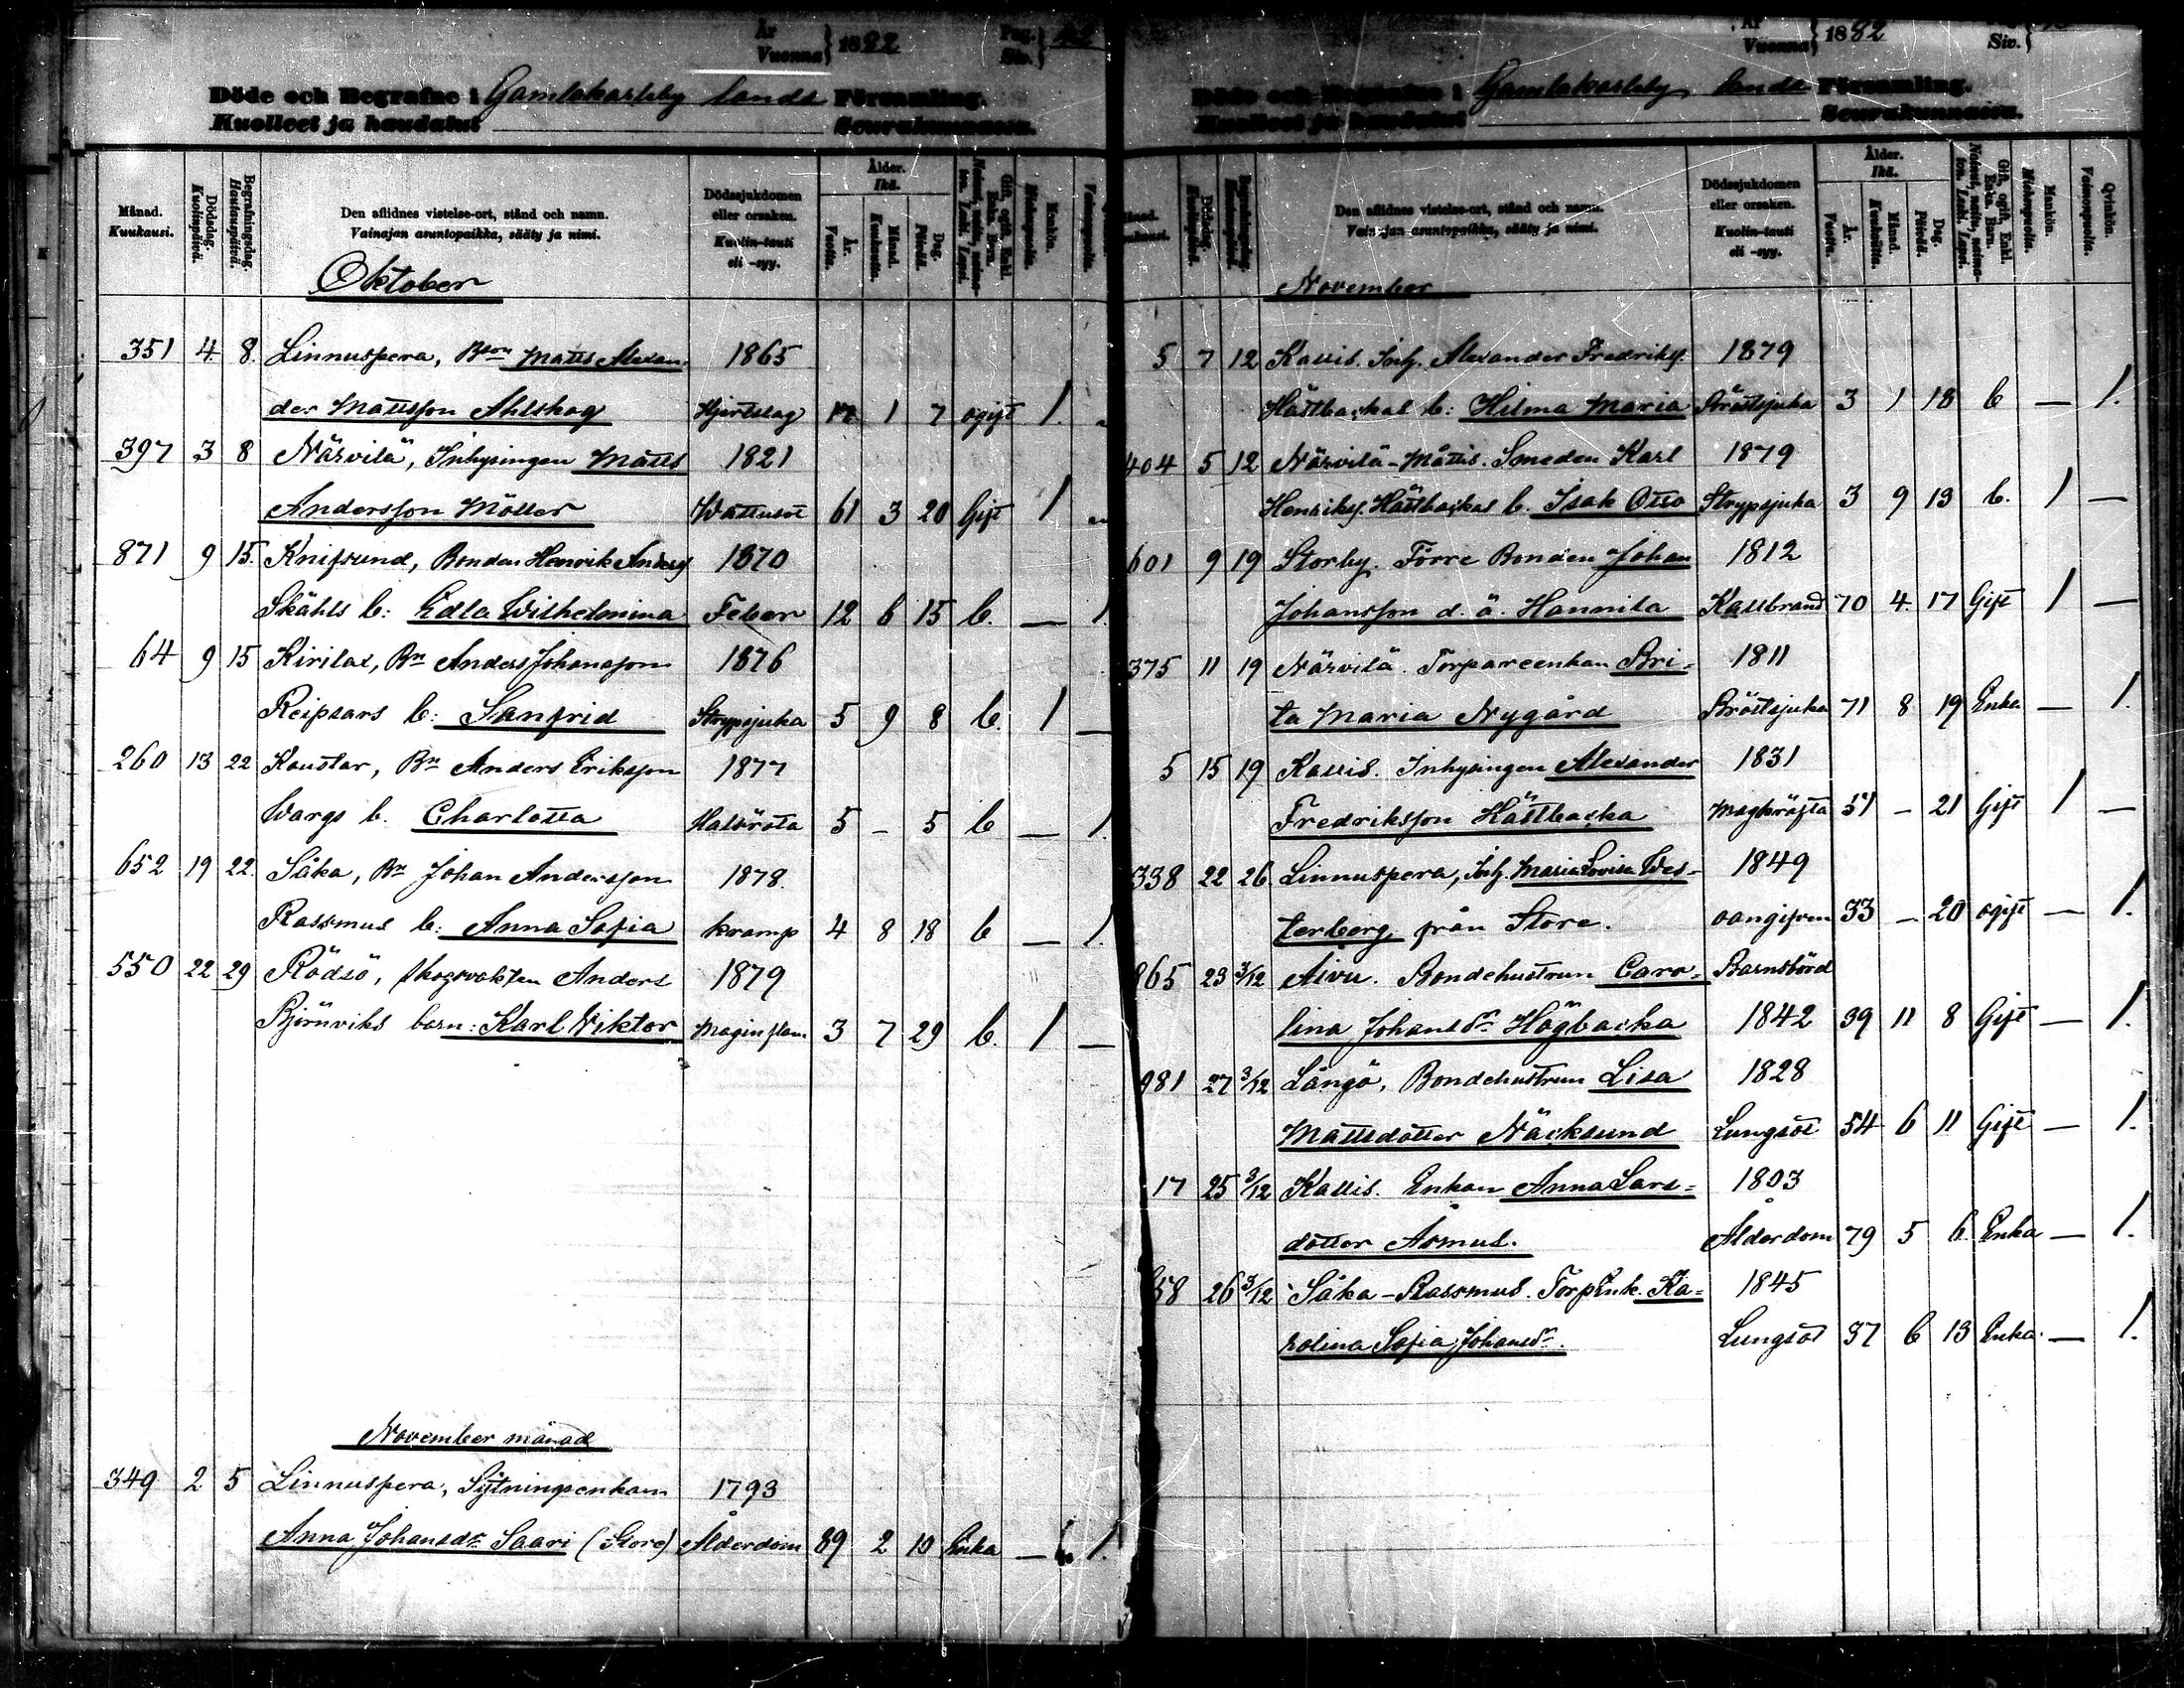 År Vuonna } 1882 Pag. Siv. }
Döde och Begrafne i Gamlakarleby lands Församling.
Kuolleet ja haudatut Seurakunnassa.
Månad. Kuukausi.
Dödsdag. Kuolinpäivä.
Begrafningsdag. Hautauspäivä.
Den aflidnes vistelse-ort, stånd och namn.
Vainajan asuntopaikka, sääty ja nimi.
Dödssjukdomen eller orsaken.
Kuolin-tauti eli -syy.
Ålder. Ikä.
År. Vuotta.
Månad. Kuukautta.
Dag. Päivää.
Gift, ogift, Enkl. Enka. Barn.
Mankön. Miehenpuolta.
Oktober
351 4 8. Linnuspera, Bson Matts Alexan- 1865
der Mattsson Ahlskog Hjertslag 17 1 7 ogift 1.
397 3 8 Närvilä, Inhysingen Matts 1821
Andersson Möller Wattusot 61 3 20 Gift 1
871 9 15. Knifsund, Bonden Henrik Anders 1870
Skåhls b: Edla Wilhelmina Feber 12 6 15 b. — 1.
64 9 15 Kirilax, Bn Anders Johansson 1876
Reipsars b: Sanfrid Strypsjuka 5 9 8 b. 1 —
260 13 22 Kaustar, Bn Anders Eriksson 1877
Wargs b. Charlotta Halsröta 5 — 5 b — 1.
652 19 22. Såka, Bn Johan Andersson 1878.
Rassmus b: Anna Sofia kramp 4 8 18 b — 1.
550 22 29 Rödsö, skogsvakten Anders 1879
Björnviks barn: Karl Viktor Maginflam. 3 7 29 b. 1 —
November månad
349 2 5 Linnuspera, Sytningsenkan 1793
Anna Johansdr Saari (Store) Ålderdom 89 2 10 Enka — 1.
År Vuonna } 1882 Siv. }
Döde och Begrafne i Gamlakarleby lands Församling.
Kuolleet ja haudatut Seurakunnassa.
Den aflidnes vistelse-ort, stånd och namn.
Vainajan asuntopaikka, sääty ja nimi.
Dödssjukdomen eller orsaken.
Kuolin-tauti eli -syy.
Ålder. Ikä.
År. Vuotta.
Månad. Kuukautta.
Dag. Päivää.
Gift, ogift, Enkl. Enka. Barn.
Mankön. Miehenpuolta.
Qvinkön. Vaimonpuolta.
November
5 7 12 Kallis. Inh. Alexander Fredriks. 1879
Hästbackas b: Hilma Maria Bröstsjuka 3 1 18 b — 1.
404 5 12 Närvilä-Mattis. Smeden Karl 1879
Henriks. Hästbackas b. Isak Otto Strypsjuka 3 9 13 b. 1 —
601 9 19 Storby. Förre Bonden Johan 1812
Johansson d. ä. Hannila Kallbrand 70 4 17 Gift 1 —
375 11 19 Närvilä. Torpareenkan Bri- 1811
ta Maria Nygård Bröstsjuka 71 8 19 Enka — 1.
5 15 19 Kallis. Inhysingen Alexander 1831
Fredriksson Hästbacka Magkräfta 51 — 21 Gift 1 —
338 22 26 Linnuspera, Inh. Maria Lovisa Wes- 1849
terberg, från Store. oangifven 33 — 20 ogift — 1.
865 23 3/12 Aivu. Bondehustrun Caro- Barnsbörd
lina Johansdr Högbacka 1842 39 11 8 Gift — 1.
981 27 3/12 Långö, Bondehustrun Lisa 1828
Mattsdotter Näcksund Lungsot 54 6 11 Gift — 1.
17 25 3/12 Kallis. Enkan Anna Lars- 1803
dotter Åsmus. Ålderdom 79 5 6 Enka — 1.
58 26 3/12 Såka-Rassmus. Torp.Enk. Ka- 1845
rolina Sofia Johansdr Lungsot 37 6 13 Enka. — 1.